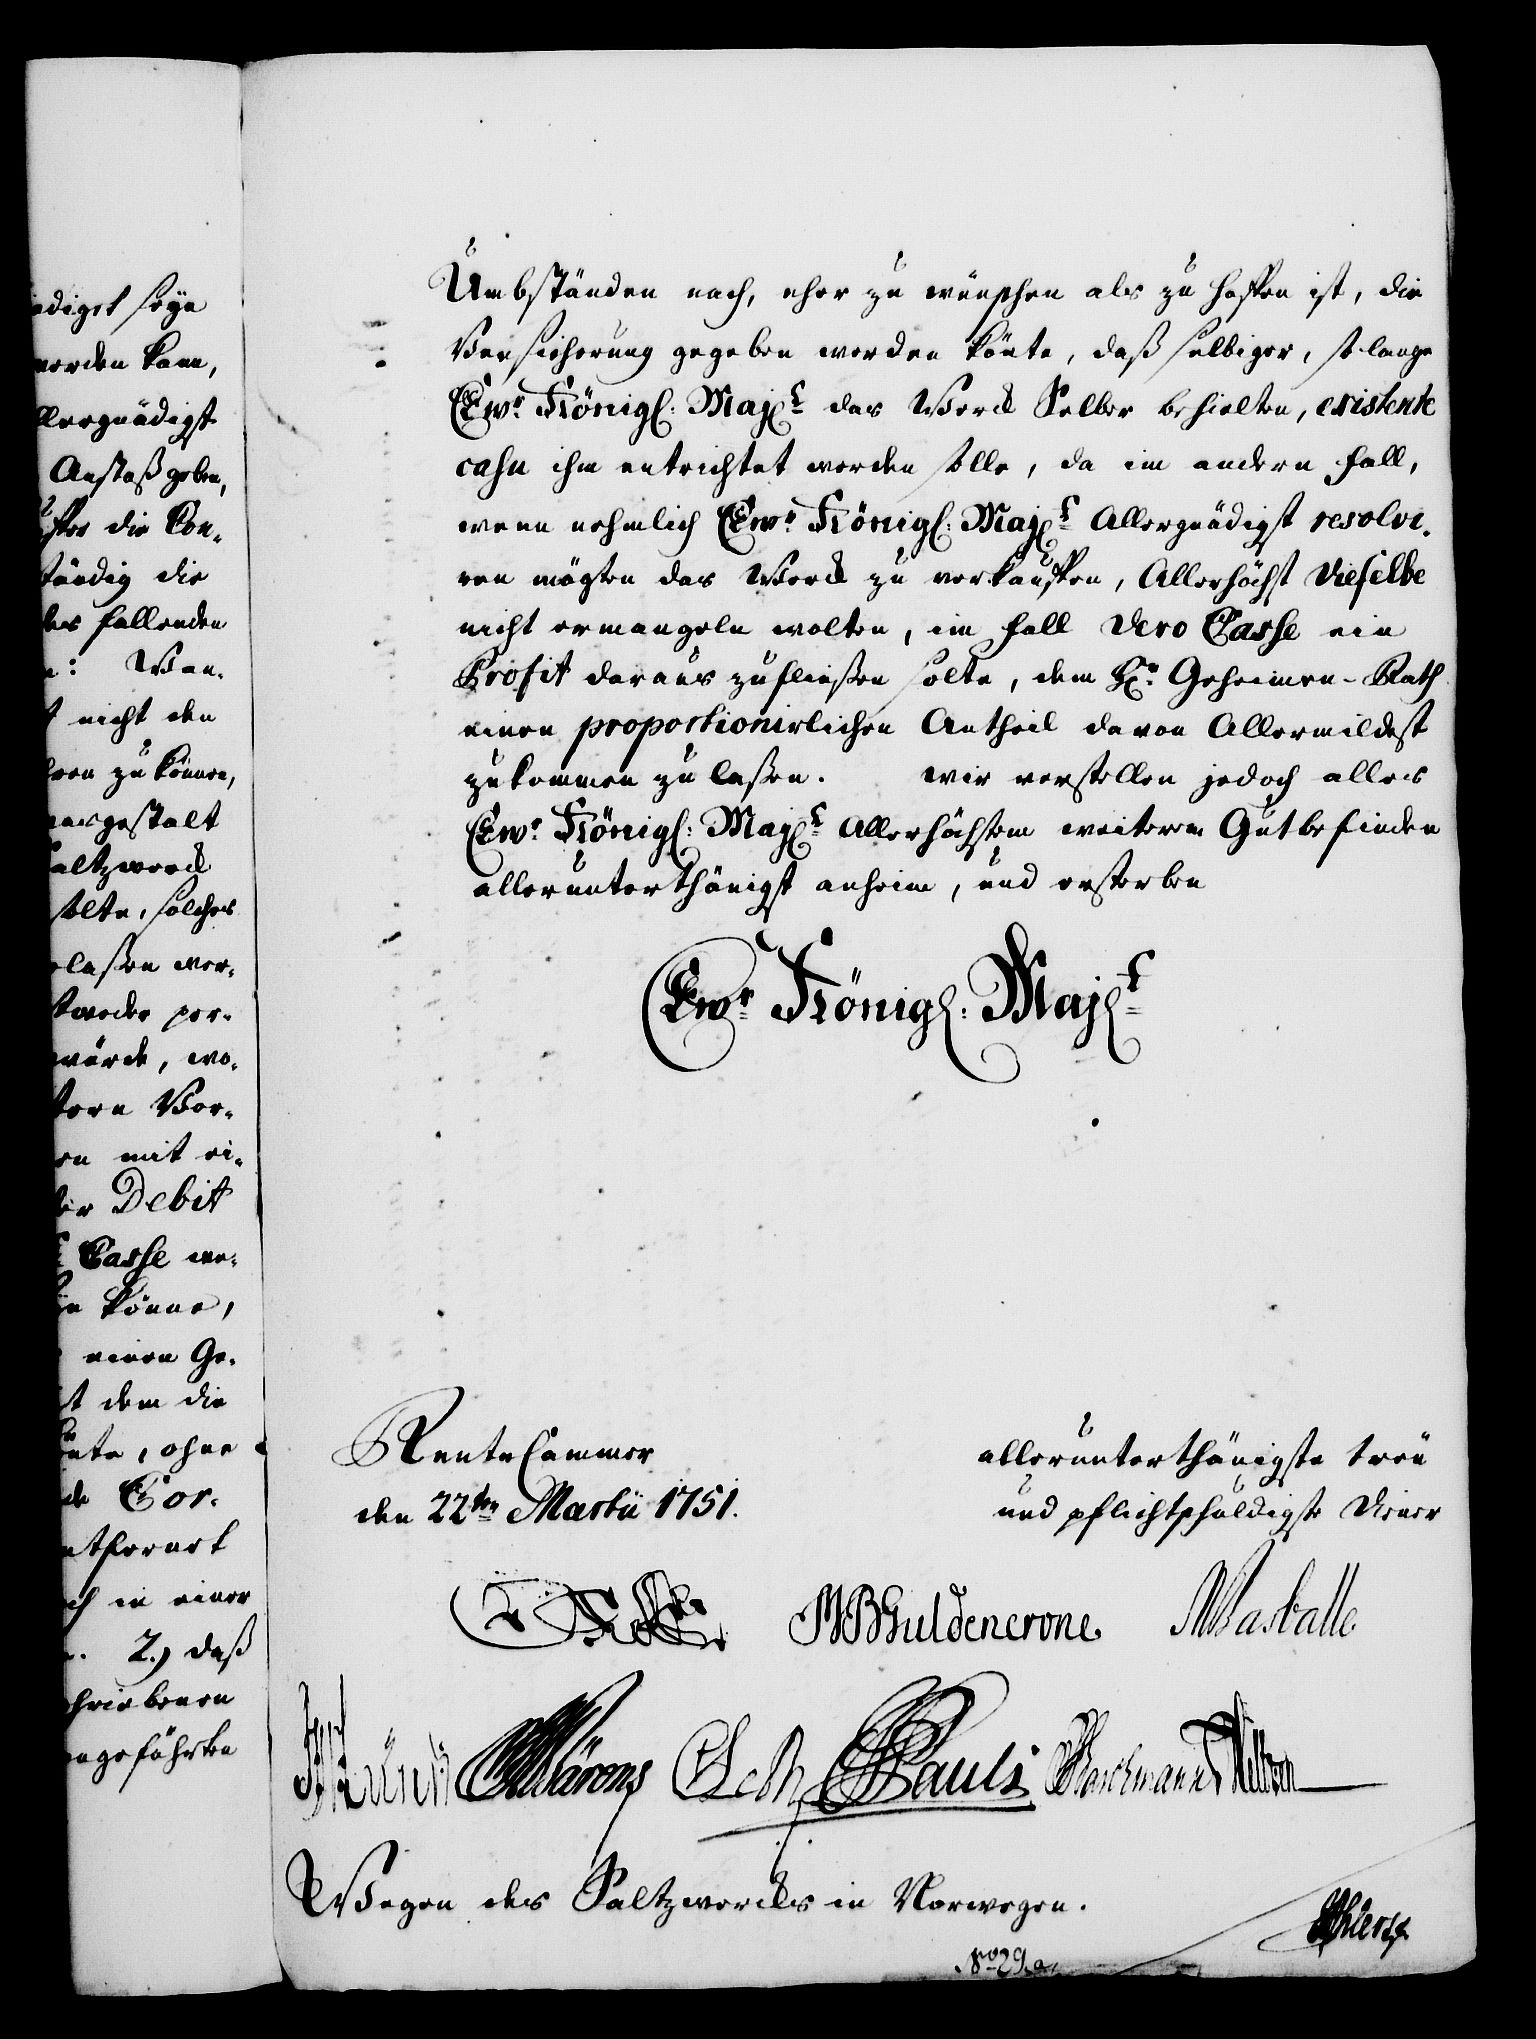 ädigst seye
werden kann,
llergnädigst
Anstoß geben,
die Con-
ständig die
des fallenden
Wan-
nicht den
zu können,
dergestalt
Saltzwerck
solte, solches
laßen wer-
per-
würde, wo-
Vor-
en mit ei-
der Debit
Casse we-
könne,
einen Ge-
dem die
, ohne
Cor-
ntfernet
ch in einer
2.) daß
chriebenen
angeführten
Umbständen nach, eher zu wünschen als zu hoffen ist, die
Versicherung gegeben werden könte, daß selbiger, so lange
Ewr. Königl: Majt. das Werck Selber behielten, existente
casu ihm entrichtet werden solle, da im andern Fall,
wenn nehmlich Ewr. Königl: Majt. Allergnädigst resolvi-
ren mögten das Werck zu verkauffen, Allerhöchst Dieselbe
nicht ermangeln wolten, im Fall Dero Casse ein
Profit daraus zufließen solte, dem Hn. Geheimen-Rath
einen proportionirlichen Antheil davon Allermildest
zukommen zu laßen. Wir verstellen jedoch alles
Ewr. Königl: Majt. Allerhöchstem weiterem Gutbefinden
allerunterthänigst anheim, und ersterben
Ewr. Königl: Majt.
RenteCammer
den 22ten Martii 1751.
allerunterthänigste treü
und pflichtschuldigste Diener
MBGuldencrone. Basballe
Wärens Pauli
Wegen des Saltzwercks in Norwegen.
Ehlers
No 29.a.